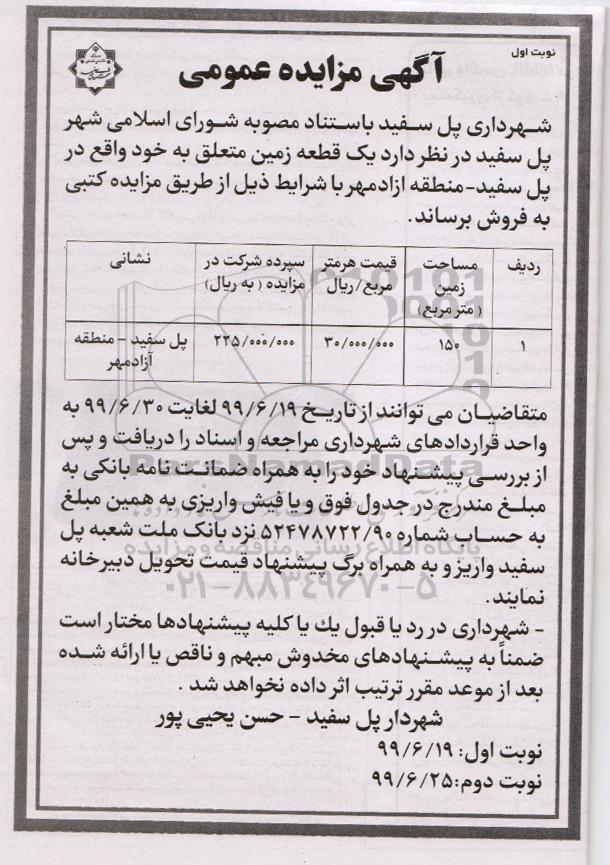 نوبت اول
آگهی مزایده عمومی
شهرداری پل سفید باستناد مصوبه شورای اسلامی شهر
پل سفید در نظر دارد یک قطعه زمین متعلق به خود واقع در
پل سفید-منطقه ازادمهر با شرایط ذیل از طریق مزایده کتبی
به فروش برساند.
ردیف | مساحت زمین (متر مربع) | قیمت هرمتر مربع/ریال | سپرده شرکت در مزایده (به ریال) | نشانی
۱ | ۱۵۰ | ۳۰/۰۰۰/۰۰۰ | ۲۲۵/۰۰۰/۰۰۰ | پل سفید - منطقه آزادمهر
متقاضیان می توانند از تاریخ ۹۹/۶/۱۹ لغایت ۹۹/۶/۳۰ به
واحد قراردادهای شهرداری مراجعه و اسناد را دریافت و پس
از بررسی پیشنهاد خود را به همراه ضمانت نامه بانکی به
مبلغ مندرج در جدول فوق و یا فیش واریزی به همین مبلغ
به حساب شماره ۵۲۴۷۸۷۲۲/۹۰ نزد بانک ملت شعبه پل
سفید واریز و به همراه برگ پیشنهاد قیمت تحویل دبیرخانه
نمایند.
- شهرداری در رد یا قبول یك یا کلیه پیشنهادها مختار است
ضمناً به پیشنهادهای مخدوش مبهم و ناقص یا ارائه شده
بعد از موعد مقرر ترتیب اثر داده نخواهد شد .
شهردار پل سفید - حسن یحیی پور
نوبت اول: ۹۹/۶/۱۹
نوبت دوم: ۹۹/۶/۲۵
ParsNamadData
پایگاه اطلاع رسانی مناقصه و مزایده
۰۲۱-۸۸۳۴۹۶۷۰-۵